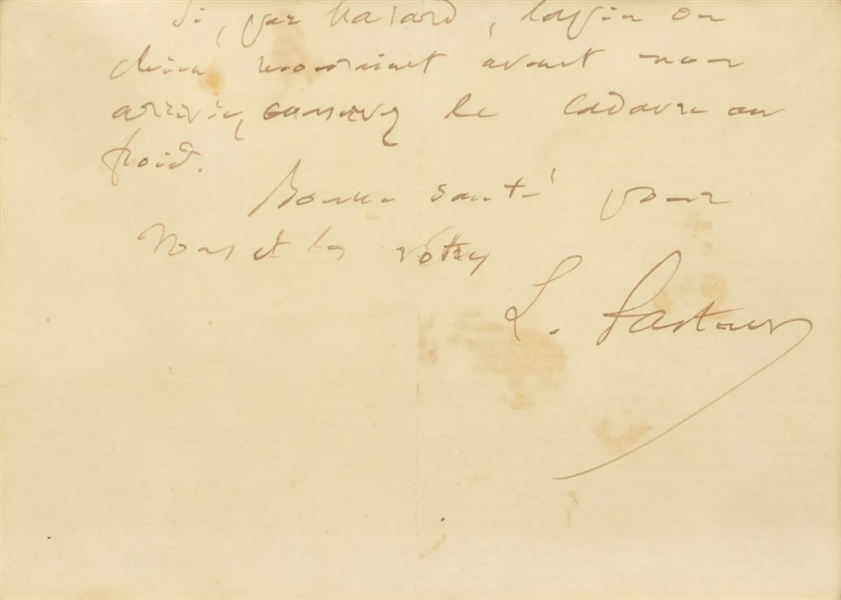 Si, par hasard, lapin ou
chien mourait avant mon
arrivée, conservez le cadavre au
froid.
Bonne santé pour
Vous et les vôtres
L. Pasteur